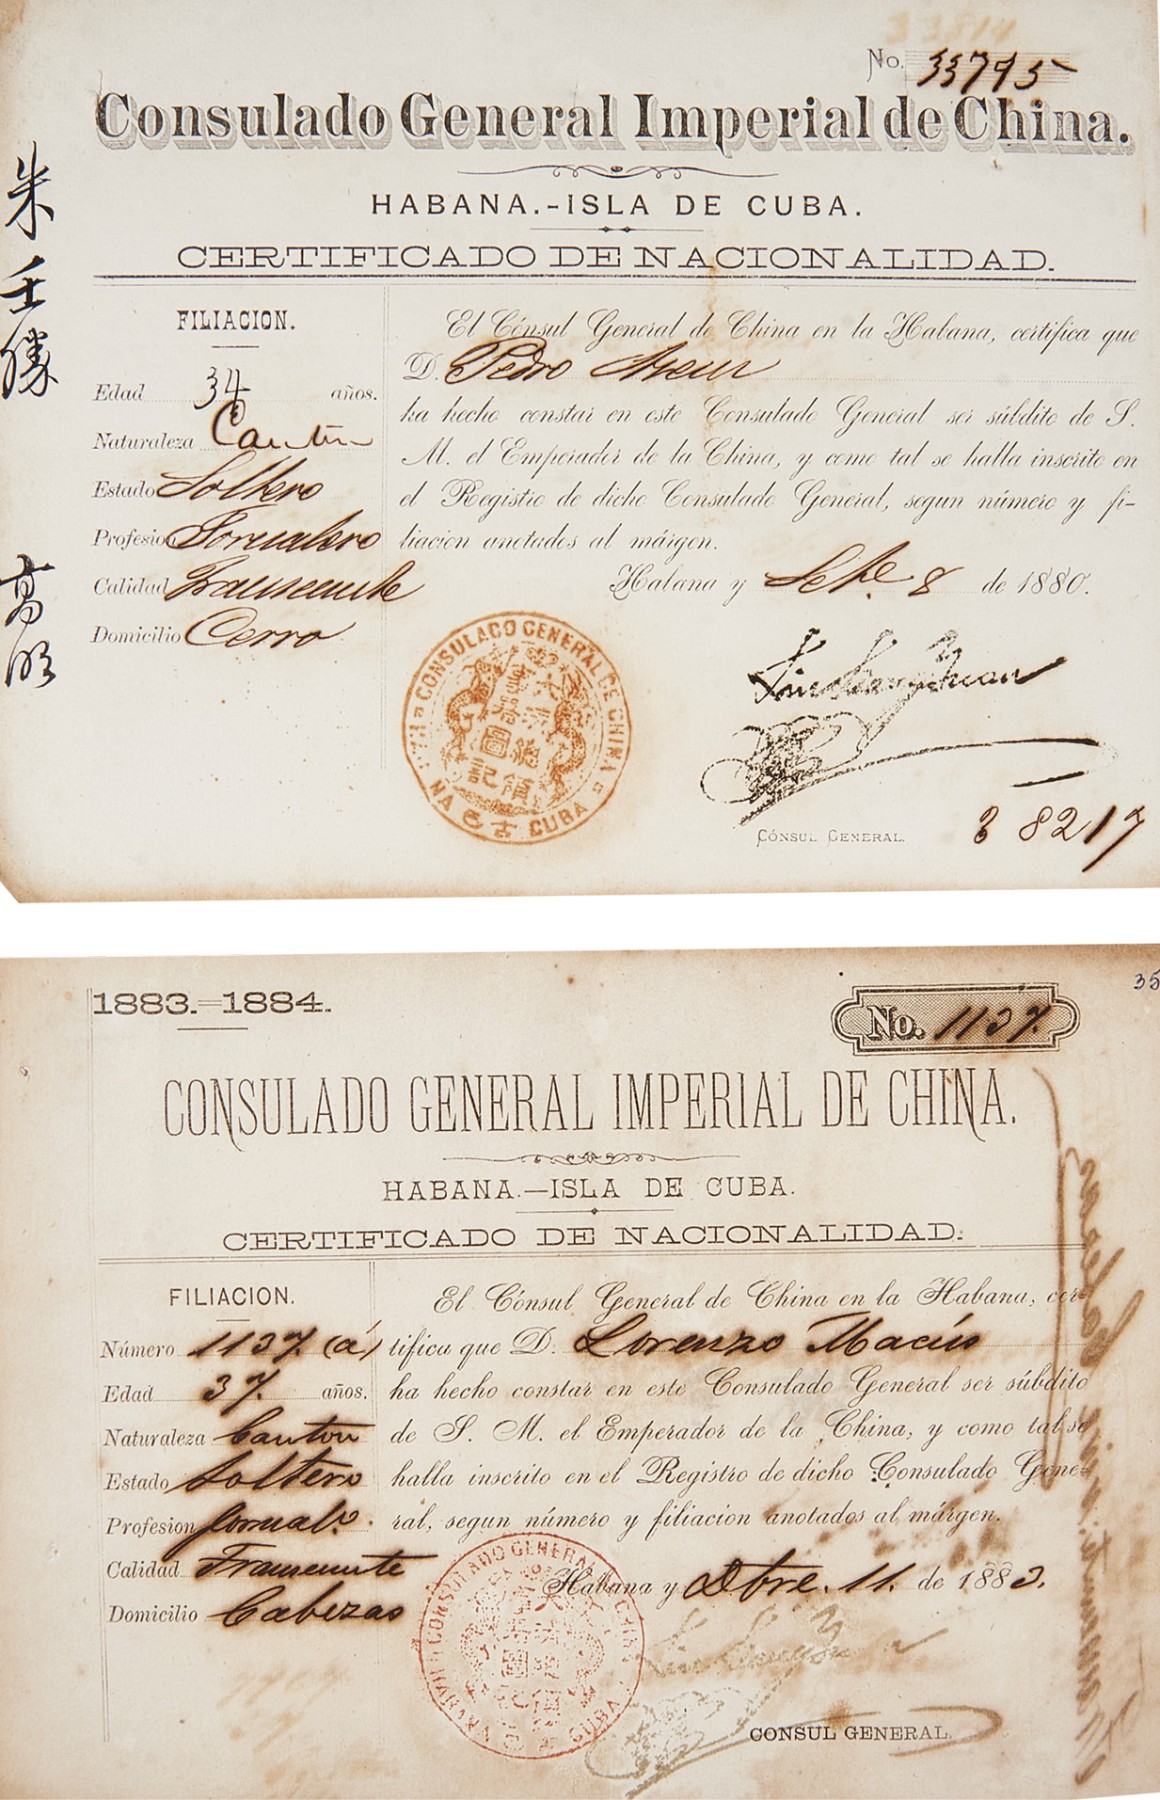 No. 33795
Consulado General Imperial de China.
HABANA.-ISLA DE CUBA.
CERTIFICADO DE NACIONALIDAD.
朱壬勝
高明
FILIACION.
Edad 34 años.
Naturaleza Canton
Estado Soltero
Profesion Jornalero
Calidad Transeunte
Domicilio Cerro
El Cónsul General de China en la Habana, certifica que
D. Pedro
ha hecho constar en este Consulado General ser súbdito de S.
M. el Emperador de la China, y como tal se halla inscrito en
el Registro de dicho Consulado General, segun número y fi-
liacion anotados al márgen.
Habana y Sete. 8 de 1880.
CONSULADO GENERAL DE CHINA
HABANA CUBA
古巴
CÓNSUL GENERAL.
38217
35
1883.=1884.
No. 1137.
CONSULADO GENERAL IMPERIAL DE CHINA.
HABANA.—ISLA DE CUBA.
CERTIFICADO DE NACIONALIDAD.
FILIACION.
Número 1137. (a)
Edad 37. años.
Naturaleza Canton
Estado Soltero
Profesion Jornalo.
Calidad Transeunte
Domicilio Cabezas
El Cónsul General de China en la Habana, cer-
tifica que D. Lorenzo Macías
ha hecho constar en este Consulado General ser súbdito
de S. M. el Emperador de la China, y como tal se
halla inscrito en el Registro de dicho Consulado Gene-
ral, segun número y filiacion anotados al márgen.
Habana y Dbre. 11. de 1883.
CONSULADO GENERAL DE CHINA
CUBA
CONSUL GENERAL.